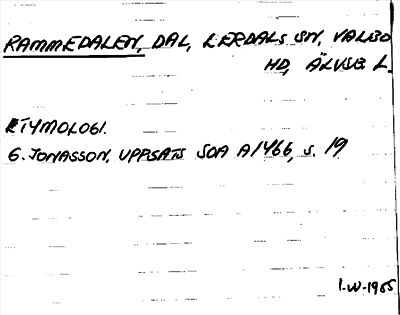 RAMMEDALEN, DAL, LERDALS SN, VALBO
HD, ÄLVSB L.
ETYMOLOGI.
G. JONASSON, UPPSATS SOA A1466, S. 19
I.W-1985